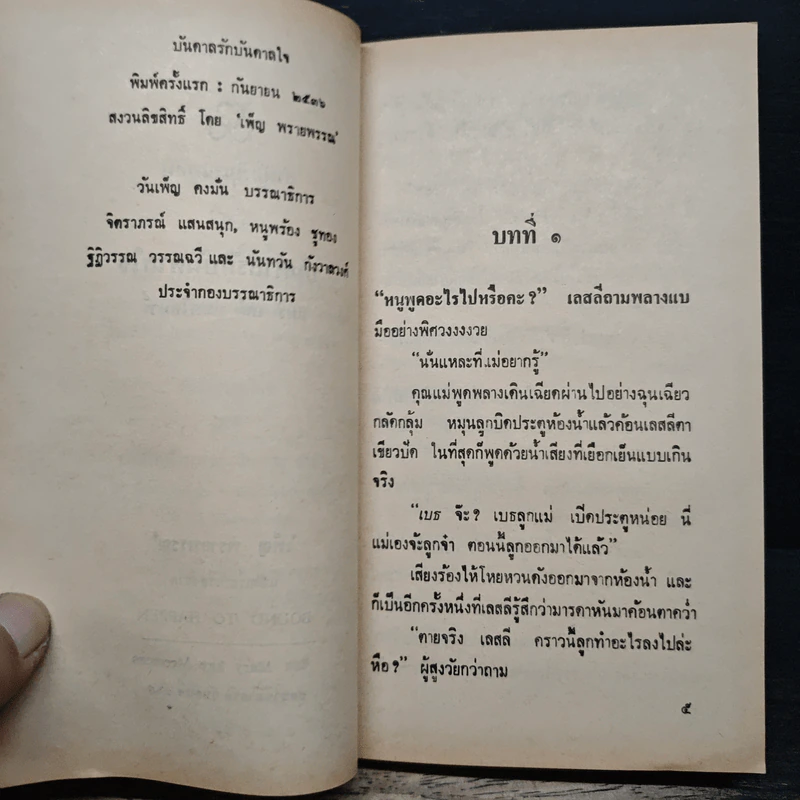 บันดาลรักบันดาลใจ
พิมพ์ครั้งแรก : กันยายน ๒๕๓๖
สงวนลิขสิทธิ์ โดย 'เพ็ญ พรายพรรณ'
วันเพ็ญ คงมั่น บรรณาธิการ
จิตราภรณ์ แสนสนุก, หนูพร้อง ชูทอง
ฐิฏิวรรณ วรรณฉวี และ นันทวัน กังวาลวงศ์
ประจำกองบรรณาธิการ
บทที่ ๑
“หนูพูดอะไรไปหรือคะ ?” เลสลีถามพลางแบ
มืออย่างพิศวงงงงวย
“นั่นแหละที่แม่อยากรู้”
คุณแม่พูดพลางเดินเฉียดผ่านไปอย่างฉุนเฉียว
กลัดกลุ้ม หมุนลูกบิดประตูห้องน้ำแล้วค้อนเลสลีตา
เขียวปัด ในที่สุดก็พูดด้วยน้ำเสียงที่เยือกเย็นแบบเกิน
จริง
“เบธ จ๊ะ ? เบธลูกแม่ เปิดประตูหน่อย นี่
แม่เองจ้ะลูกจ๋า ตอนนี้ลูกออกมาได้แล้ว”
เสียงร้องไห้โหยหวนดังออกมาจากห้องน้ำ และ
ก็เป็นอีกครั้งหนึ่งที่เลสลีรู้สึกว่ามารดาหันมาค้อนตาคว่ำ
“ตายจริง เลสลี คราวนี้ลูกทำอะไรลงไปล่ะ
หือ ?” ผู้สูงวัยกว่าถาม
๕